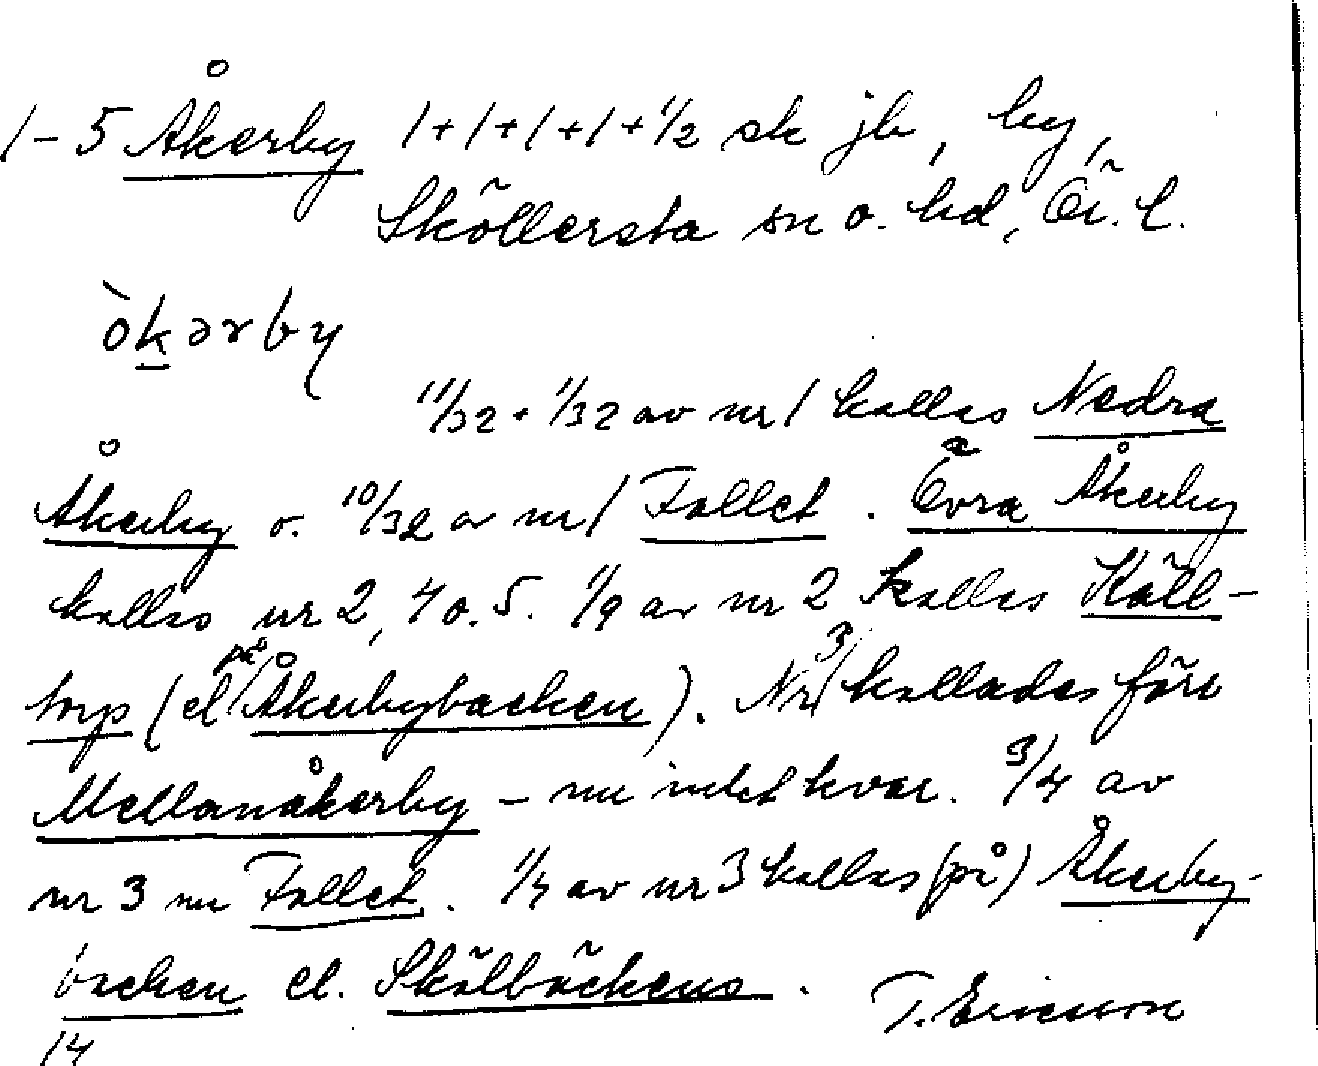 1-5 Åkerby 1+1+1+1+1/2 sk jb, by,
Sköllersta sn o. hd, Ör. l.
òkərby
11/32 + 1/32 av nr 1 kallas Nedra
Åkerby o. 10/32 av nr 1 Fallet. Övra Åkerby
kallas nr 2, 4 o. 5. 1/9 av nr 2 kallas Käll-
torp (el på Åkerbybacken). Nr 3 kallades förr
Mellanåkerby - nu intet kvar. 3/4 av
nr 3 nu Fallet. 1/4 av nr 3 kallas (på) Åkerby-
backen el. Skölbäckens.
T. Ericsson
14